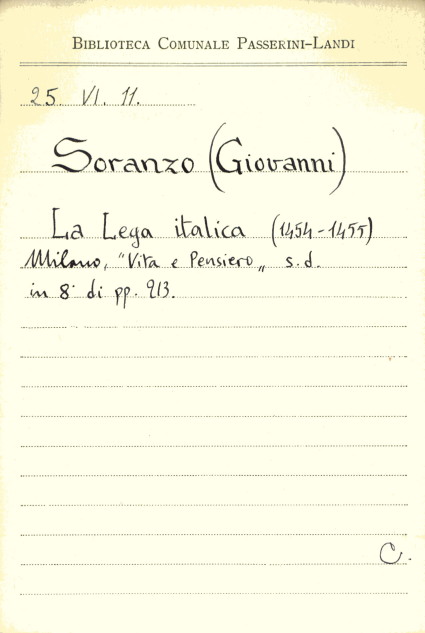 BIBLIOTECA COMUNALE PASSERINI-LANDI
25. VI. 11.
Soranzo (Giovanni)
La Lega italica (1454-1455)
Milano, "Vita e Pensiero„ s.d.
in 8° di pp. 213.
C.